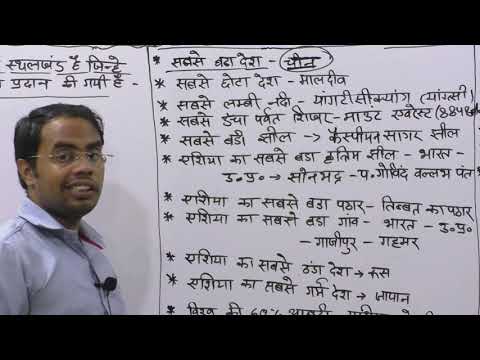 स्थलखंड है जिन्हे
प्रदान की गयी है -
* सबसे बडा देश - चीन
* सबसे छोटा देश - मालदीव
* सबसे लम्बी नदी - यांगटीसीक्यांग (यांग्त्सी)
* सबसे ऊंचा पर्वत शिखर - माउंट एवरेस्ट (884
* सबसे बडी झील → कैस्पीयन सागर झील
* एशिया का सबसे बडा कृत्रिम झील - भारत -
उ०प्र० → सोनभद्र - प. गोविंद वल्लभ पंत
* एशिया का सबसे बडा पठार - तिब्बत का पठार
* एशिया का सबसे बडा गांव - भारत - उ०प्र०
- गाजीपुर - गहमर
* एशिया का सबसे ठंडा देश → रूस
* एशिया का सबसे गर्म देश → जापान
* विश्व की 60% आबादी